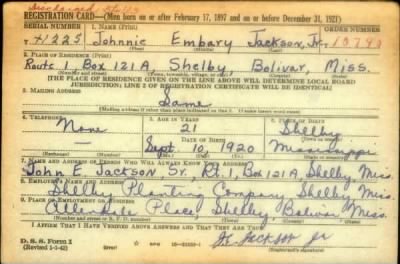 REGISTRATION CARD—(Men born on or after February 17, 1897 and on or before December 31, 1921)
SERIAL NUMBER 1. NAME (Print) ORDER NUMBER
Johnnie Embary Jackson, Jr.
2. PLACE OF RESIDENCE (Print)
Route 1, Box 121A, Shelby, Bolivar, Miss.
(Number and street) (Town, township, village, or city) (County) (State)
[THE PLACE OF RESIDENCE GIVEN ON THE LINE ABOVE WILL DETERMINE LOCAL BOARD
JURISDICTION; LINE 2 OF REGISTRATION CERTIFICATE WILL BE IDENTICAL]
3. MAILING ADDRESS
Same
4. TELEPHONE 5. AGE IN YEARS 6. PLACE OF BIRTH
None 21 Shelby
DATE OF BIRTH
Sept. 10, 1920 Mississippi
(Exchange) (Number) (Mo.) (Day) (Yr.) (State or country)
7. NAME AND ADDRESS OF PERSON WHO WILL ALWAYS KNOW YOUR ADDRESS
John E. Jackson Sr., Rt. 1, Box 121A, Shelby Miss.
8. EMPLOYER'S NAME AND ADDRESS
Shelby Planting Company, Shelby Miss.
9. PLACE OF EMPLOYMENT OR BUSINESS
Place, Shelby, Bolivar Miss.
(Number and street or R. F. D. number) (Town) (County) (State)
I AFFIRM THAT I HAVE VERIFIED ABOVE ANSWERS AND THAT THEY ARE TRUE.
D. S. S. Form 1
(Revised 1-1-42) (over)
Jackson Jr
(Registrant's signature)